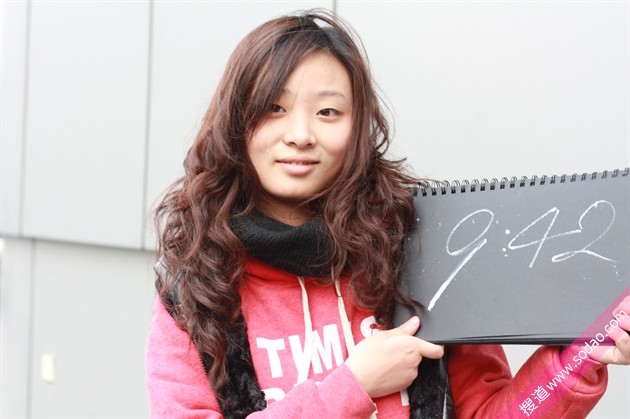 9:42
TMS
搜道www.sodao.com